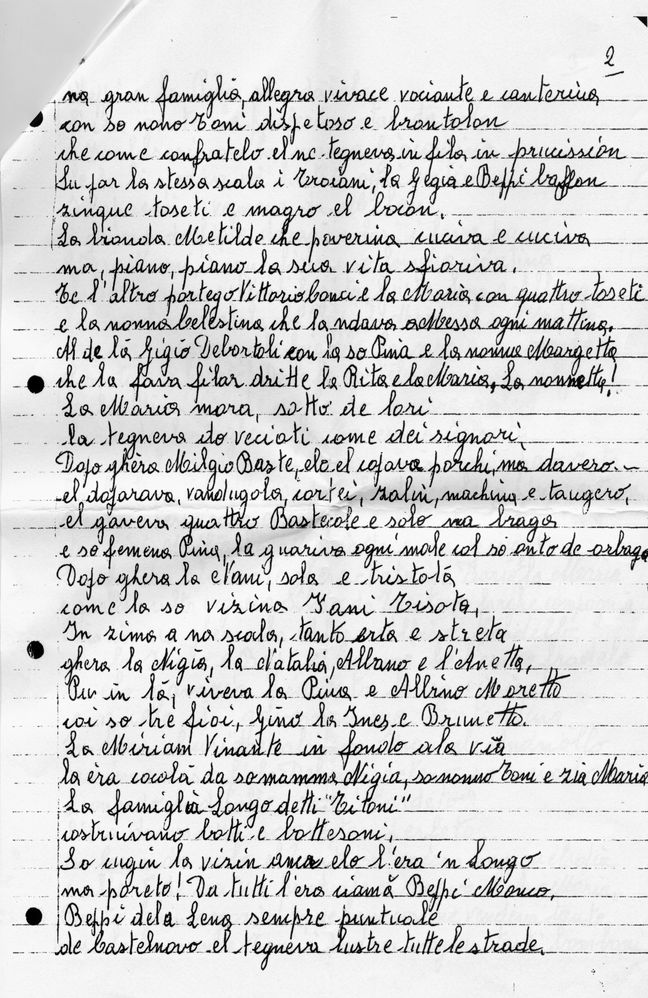 2
na gran famiglia, allegra vivace vociante e canterina
con so nono Toni dispetoso e brontolon
che come confratelo el ne tegneva in fila in prucission
Su par la stessa scala i Troiani, la Gegia e Beppi baffon
zinque toseti e magro el bocon.
La bionda Metilde che poverina cuciva e cuciva
ma, piano, piano la sua vita sfioriva.
Te l'altro portego Vittorio Conci e la Maria con quattro toseti
e la nonna Celestina che la ndava a Messa ogni mattina.
Al de là Gigio Debortoli con la so Pina e la nonna Margetta
che la fava filar dritte la Rita e la Maria, La nonnetta!
La Maria mora, sotto de lori
la tegneva do veciati come dei signori,
Dopo ghèra Milgio Baste, elo el copava porchi, ma davero.-
el doparava, vandugola, cortei, zalin, machina e taugero,
el gaveva quattro Bastecole e solo na braga
e so femena Pina, la guariva ogni male col so onto de orbaga
Dopo ghera la Nani, sola e tristotà
come la so vizina Fani Tisota,
In zima a na scala, tanto erta e streta
ghera la Nigia, la Natalia, Albano e l'Anetta,
Pu in là, viveva la Pina e Albino Moretto
coi so tre fioi, Gino la Ines e Brunetto.
La Miriam Vinante in fondo ala via
la èra cocolà da so mamma Nigia, so nonno Toni e zia Maria
La famiglia Longo detti "Titoni"
costruivano botti e bottesoni,
So cugin la vizin anca elo l'era 'n Longo
ma poreto! Da tutti l'era ciamà Beppi Monco,
Beppi dela Lena sempre puntuale
de Castelnovo el tegneva lustre tutte le strade.